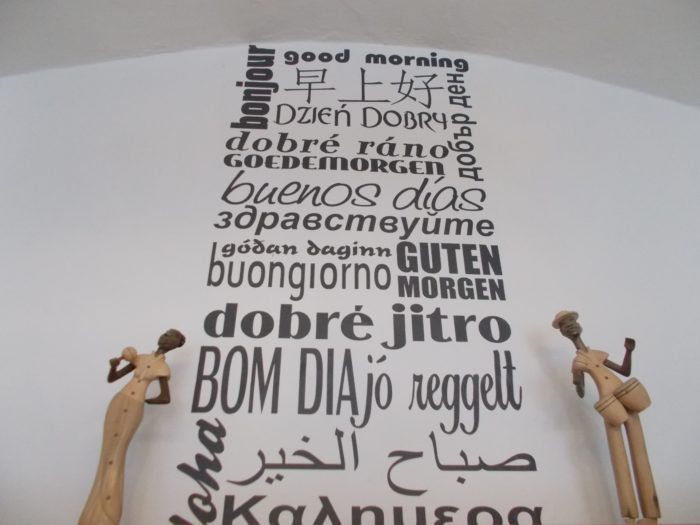 bonjour
good morning
早上好
добър ден
DZIEŃ DOBRY
dobré ráno
GOEDEMORGEN
buenos días
здравствуйте
góðan daginn
buongiorno
GUTEN
MORGEN
dobré jitro
BOM DIA
jó reggelt
صباح الخير
Καλημερα